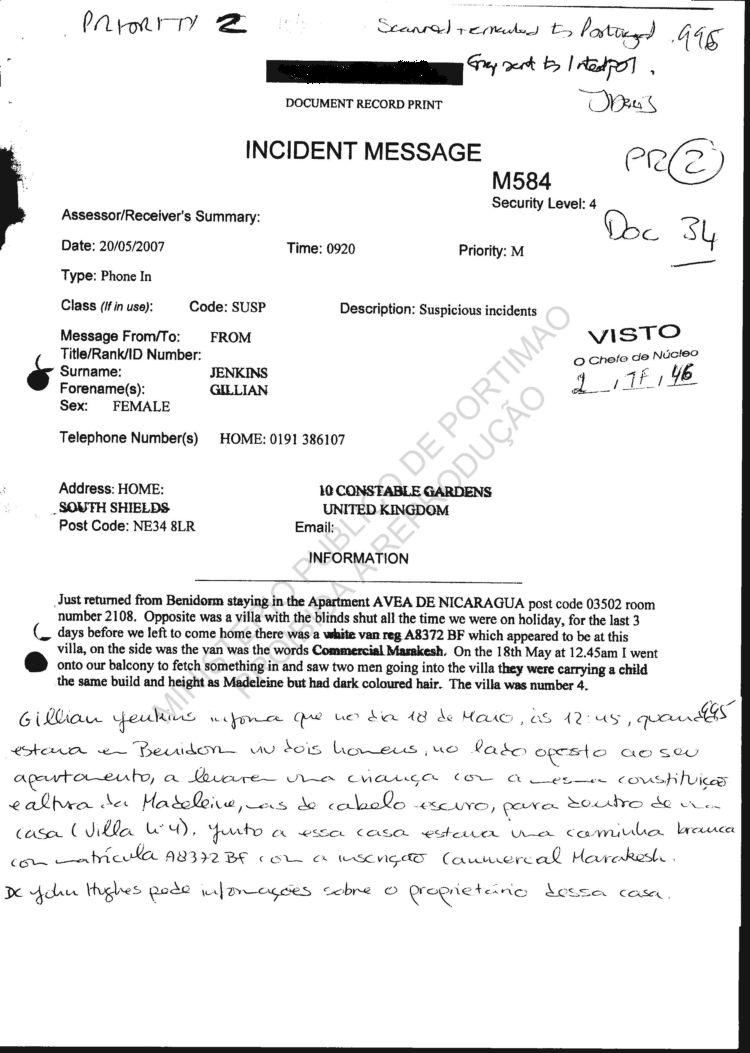 PRIORITY 2
Scanned + emailed to Portugal 995
Copy sent to Interpol.
DOCUMENT RECORD PRINT
INCIDENT MESSAGE
PR 2
M584
Security Level: 4
Doc 34
Assessor/Receiver's Summary:
Date: 20/05/2007 Time: 0920 Priority: M
Type: Phone In
Class (If in use): Code: SUSP Description: Suspicious incidents
Message From/To: FROM
Title/Rank/ID Number:
Surname: JENKINS
Forename(s): GILLIAN
Sex: FEMALE
VISTO
O Chefe de Núcleo
Telephone Number(s) HOME: 0191 386107
Address: HOME: 10 CONSTABLE GARDENS
SOUTH SHIELDS UNITED KINGDOM
Post Code: NE34 8LR Email:
INFORMATION
Just returned from Benidorm staying in the Apartment AVEA DE NICARAGUA post code 03502 room
number 2108. Opposite was a villa with the blinds shut all the time we were on holiday, for the last 3
days before we left to come home there was a white van reg A8372 BF which appeared to be at this
villa, on the side was the van was the words Commercial Marakesh. On the 18th May at 12.45am I went
onto our balcony to fetch something in and saw two men going into the villa they were carrying a child
the same build and height as Madeleine but had dark coloured hair. The villa was number 4.
995
Gillian Jenkins informa que no dia 18 de Maio, às 12:45, quando
estava em Benidorm viu dois homens, no lado oposto ao seu
apartamento, a levarem uma criança com a mesma constituição
e altura da Madeleine, mas de cabelo escuro, para dentro de uma
casa (Villa nº4). Junto a essa casa estava uma carrinha branca
com matrícula A8372 BF com a inscrição Commercal Marakesh.
DC John Hughes pede informações sobre o proprietário dessa casa.
MINISTÉRIO PUBLICO DE PORTIMAO
PROIBIDA A REPRODUÇÃO